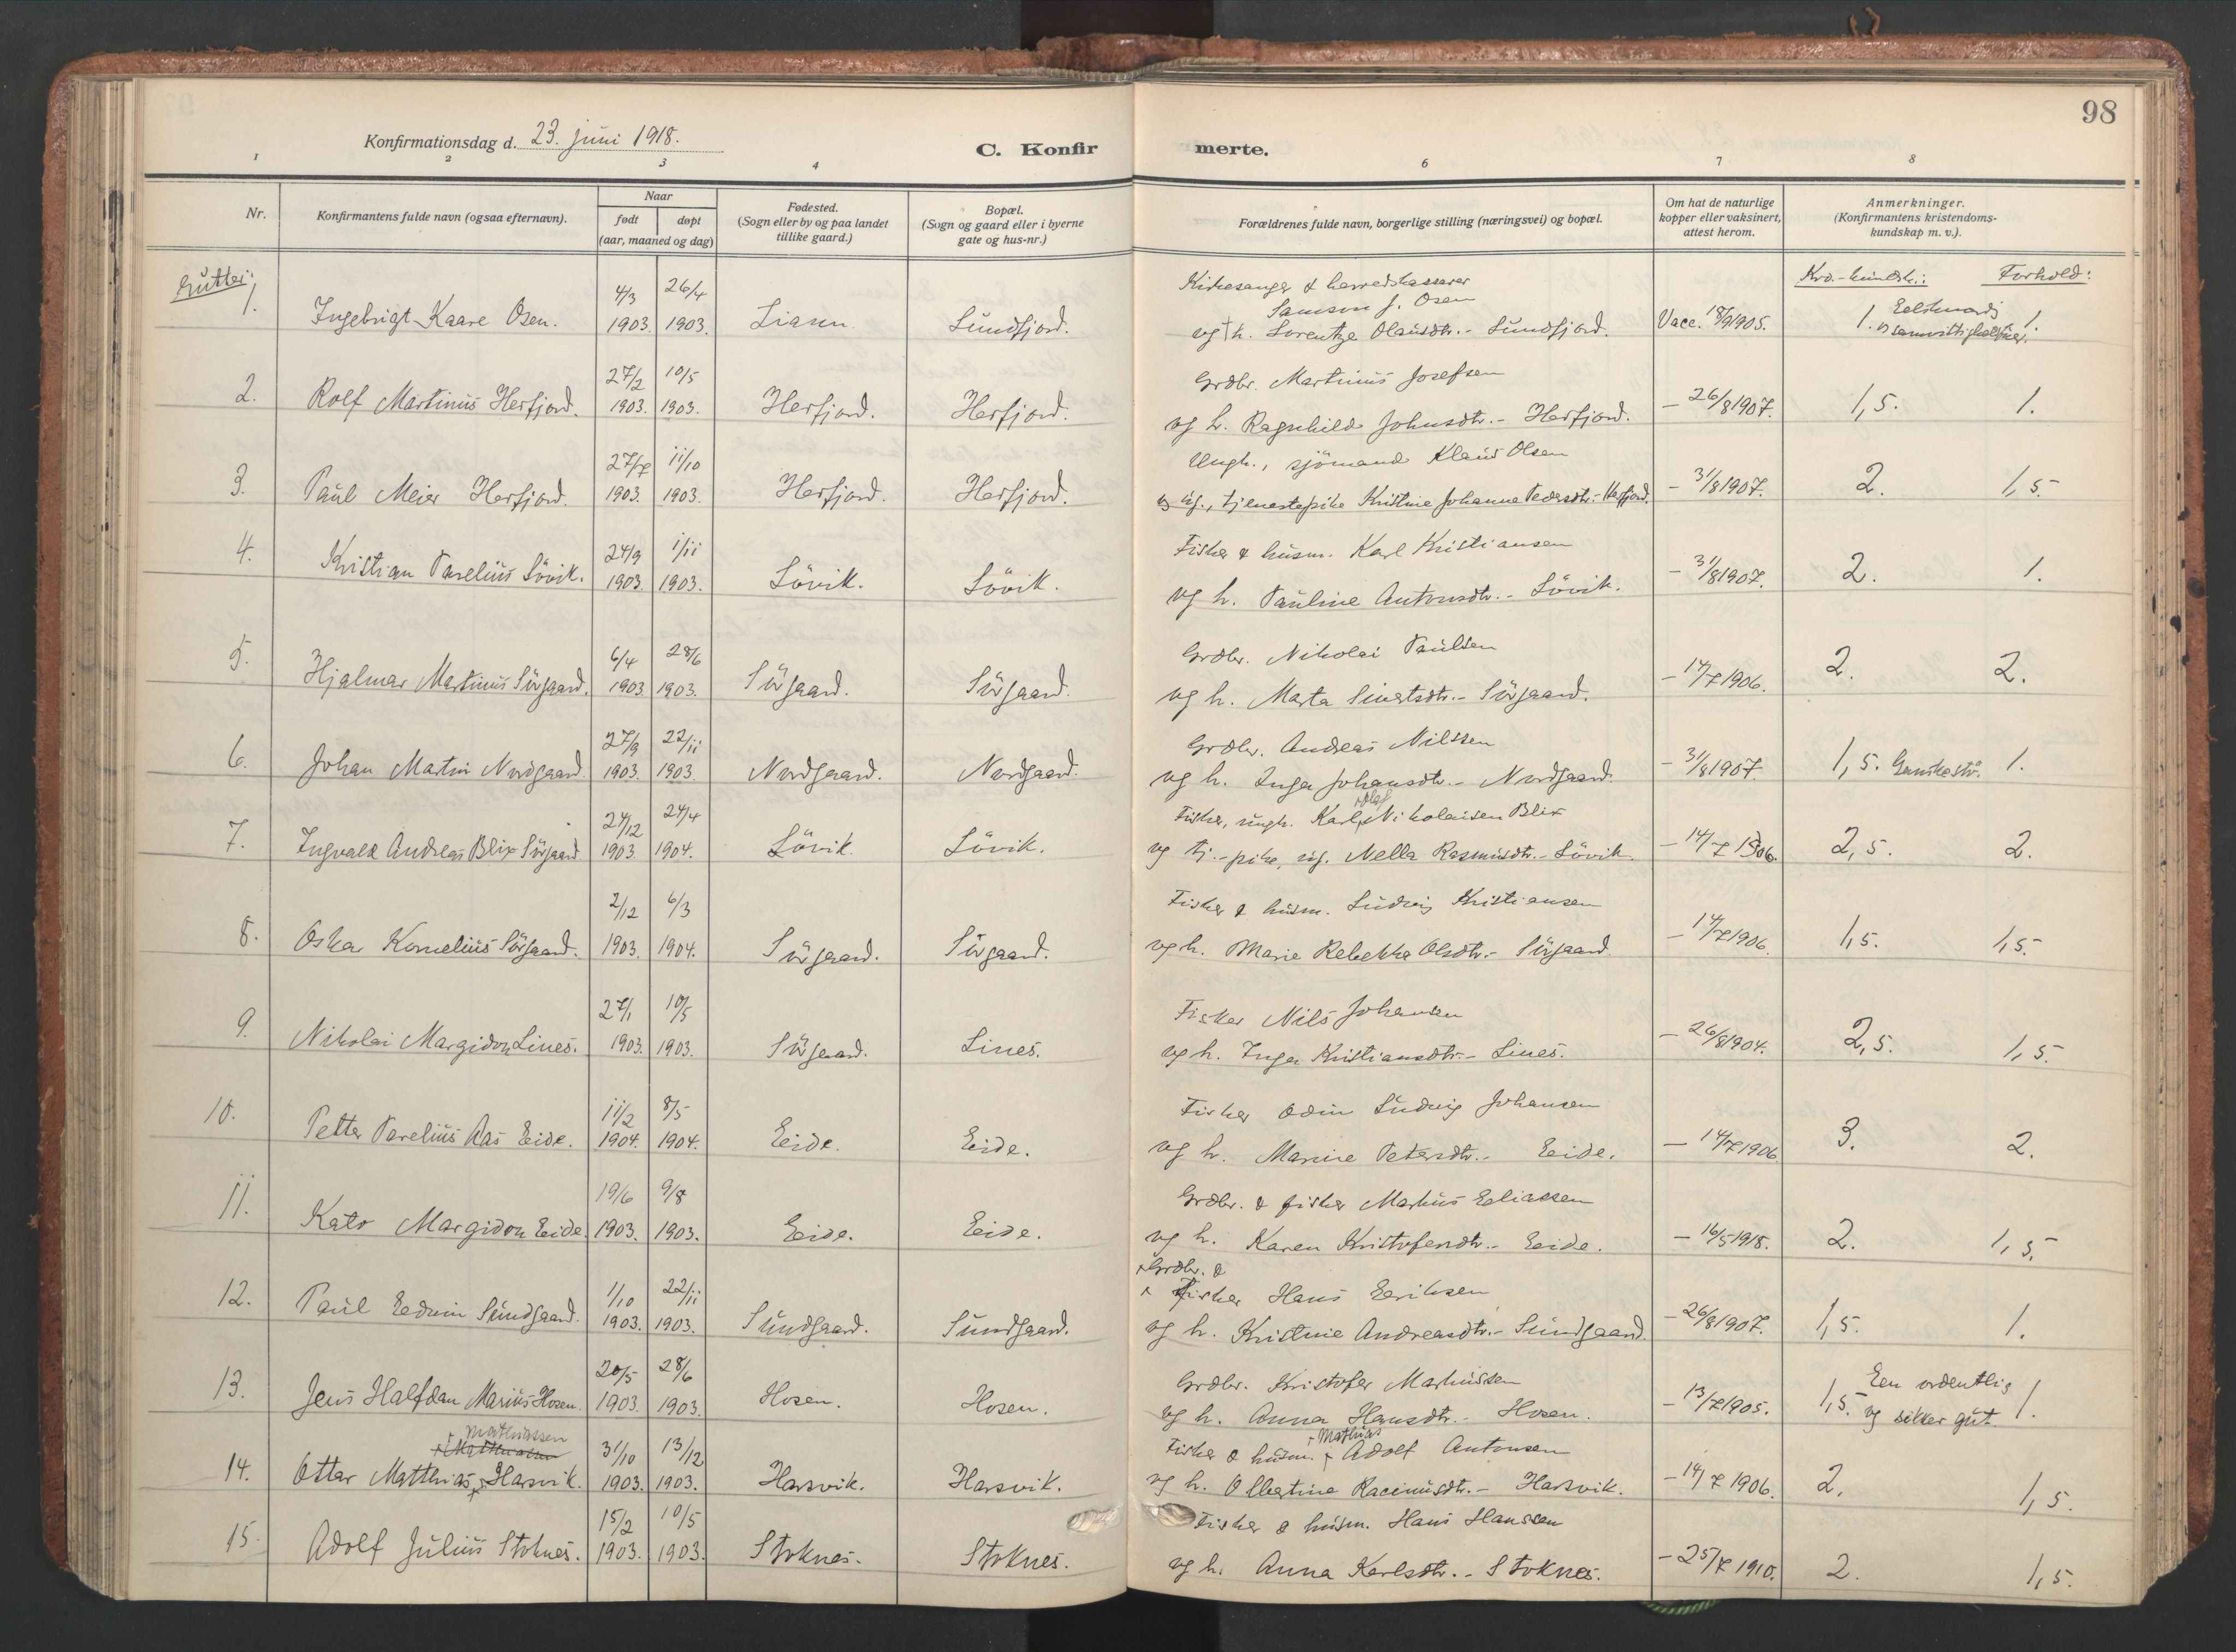 98
Konfirmationsdag d. 23. juni 1918.
C. Konfirmerte.
1 2 3 4 6 7 8
Nr.
Konfirmantens fulde navn (ogsaa efternavn).
Naar
født døpt
(aar, maaned og dag)
Fødested.
(Sogn eller by og paa landet
tillike gaard.)
Bopæl.
(Sogn og gaard eller i byerne
gate og hus-nr.)
Forældrenes fulde navn, borgerlige stilling (næringsvei) og bopæl.
Om hat de naturlige
kopper eller vaksinert,
attest herom.
Anmerkninger.
(Konfirmantens kristendoms-
kundskap m. v.).
Gutter:
Forhold:
Kirkesanger & herredskasserer
4/3 26/4 Samson J. Osen
1. Ingebrigt Kaare Osen. 1903. 1903. Sundfjord. og † h. Lorentze Olausdtr. - Sundfjord. Vacc. 18/9 1905. 1. samvittighetsfuld. 1.
27/2 10/5 Grdbr. Martinus Josefsen
2. Rolf Martinus Herfjord. 1903. 1903. Herfjord. Herfjord. og h. Ragnhild Johnsdtr. - Herfjord. - 26/8 1907. 1,5. 1.
27/7 11/10 Ungk., sjömand Klaus Olsen
3. Paul Meier Herfjord. 1903. 1903. Herfjord. Herfjord. og ug., tjenestepike Kristine Johanne Pedersdtr. - Herfjord. - 31/8 1907. 2. 1,5
24/9 1/11 Fisker & husm. Karl Kristiansen
4. Kristian Parelius Lövik. 1903. 1903. Lövik. Lövik. og h. Pauline Antonsdtr. - Lövik. - 31/8 1907. 2. 1.
6/4 28/6 Grdbr. Nikolai Paulsen
5. Hjalmar Martinus Sörgaard. 1903 1903. Sörgaard. Sörgaard. og h. Marta Sivertsdtr. - Sörgaard. - 14/7 1906. 2. 2.
27/9 22/11 Grdbr. Andreas Nilssen
6. Johan Martin Nordgaard 1903. 1903. Nordgaard. Nordgaard. og h. Inga Johansdtr. - Nordgaard. - 31/8 1907. 1,5. 1.
24/12 24/4 Fisker, ungk. Karl + Olaf Nikolaisen Blix
7. Ingvald Andreas Blix Sörgaard 1903 1904. Lövik. Lövik. og tj.-pike, ug. Nella Rasmusdtr. - Lövik. - 14/7 1906. 2,5. 2.
2/12 6/3 Fisker & husm. Ludvig Kristiansen
8. Oskar Kornelius Sörgaard. 1903. 1904. Sörgaard. Sörgaard. og h. Marie Rebekka Olsdtr. - Sörgaard - 14/7 1906. 1,5. 1,5.
27/1 10/5 Fisker Nils Johansen
9. Nikolai Margidon Lines. 1903. 1903. Sörgaard. Lines. og h. Inga Kristiansdtr. - Lines. - 26/8 1904. 2,5. 1,5.
11/2 8/5 Fisker Odin Ludvig Johansen
10. Petter Parelius Aas Eide. 1904. 1904. Eide. Eide. og h. Marine Petersdtr. - Eide. - 14/7 1906 3. 2.
19/6 9/8 Grdbr. & fisker Markus Eliassen
11. Kato Margidon Eide. 1903. 1903. Eide. Eide. og h. Karen Kristofersdtr. - Eide. - 16/5 1918. 2. 1,5.
+ Grdbr. &
1/10 22/11 + Fisker Hans Eriksen
12. Paul Edvin Sundgaard. 1903. 1903. Sundgaard. Sundgaard. og h. Kristine Andreasdtr. - Sundgaard - 26/8 1907. 1,5. 1.
20/5 28/6 Grdbr. Kristofer Markussen
13. Jens Halfdan Marius Hosen. 1903. 1903. Hosen. Hosen. og h. Anna Hansdtr. - Hosen. - 13/7 1905. 1,5. En ordentlig og sikker gut. 1.
+ Mathiassen
31/10 13/12 Fisker & husm. + Mathias Adolf Antonsen
14. Ottar Matthias + Harsvik. 1903. 1903. Harsvik. Harsvik. og h. Olbertine Racinusdtr. - Harsvik. - 14/7 1906. 2. 1,5.
15/2 10/5 Fisker & husm. Hans Hanssen
15. Adolf Julius Stoknes. 1903. 1903. Stoknes. Stoknes. og h. Anna Karlsdtr. - Stoknes. - 25/7 1910. 2. 1,5.